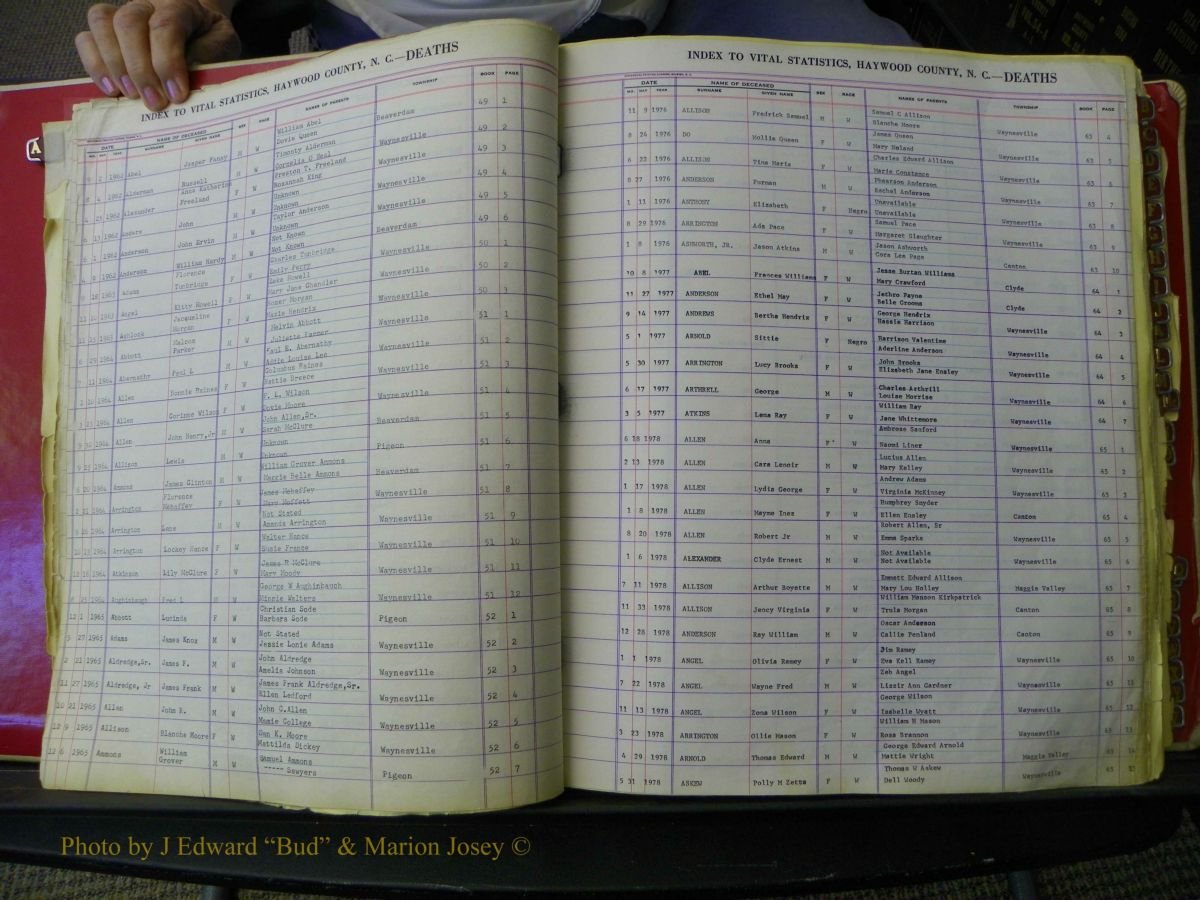 INDEX TO VITAL STATISTICS, HAYWOOD COUNTY, N. C.—DEATHS
DATE NAME OF DECEASED SEX RACE NAMES OF PARENTS TOWNSHIP BOOK PAGE
MO. DAY YEAR SURNAME GIVEN NAME
2 1962 Abel Jasper Faney M W William Abel Beaverdam 49 1
Dovie Queen
4 1962 Alderman Russell M W Timonty Alderman Waynesville 49 2
Cornelia O Neal
23 1962 Alexander Anna Katherine Freeland F W Preston T. Freeland Waynesville 49 3
Rozannah King
13 1962 Anders John M W Unknown Waynesville 49 4
Unknown
1 1962 Anderson John Ervin M W Taylor Anderson Waynesville 49 5
Unknown
1962 Anderson William Hardy M W Not Known Beaverdam 49 6
Not Known
18 1963 Adams Florence Tunbridge F W Charles Tunbridge Waynesville 50 1
Emily Perry
1963 Angel Kitty Howell F W Zeke Howell Waynesville 50 2
Mary Jane Chandler
1963 Ashlock Jacqueline Morgan F W Homer Morgan Waynesville 50 3
Marie Hendrix
29 1964 Abbott Malcom Parker M W Melvin Abbott Waynesville 51 1
Juliette Parker
11 1964 Abernathy Paul L M W Paul E. Abernathy Waynesville 51 2
Addie Louise Lee
10 1964 Allen Bonnie Raines F W Columbus Raines Waynesville 51 3
Hattie Dreece
1964 Allen Corinne Wilson F W F. L. Wilson Waynesville 51 4
Dovie Moore
1964 Allen John Henry,Jr M W John Allen,Sr. Beaverdam 51 5
Sarah McClure
25 1964 Allison Lewis M W Unknown Pigeon 51 6
Unknown
20 1964 Ammons James Clinton M W William Grover Ammons Beaverdam 51 7
Maggie Belle Ammons
1964 Arrington Florence Mehaffey F W James Mehaffey Waynesville 51 8
Mary Moffett
1964 Arrington Lane M W Not Stated Waynesville 51 9
Amanda Arrington
10 13 1964 Arrington Lockey Hance F W Walter Hance Waynesville 51 10
Susie France
18 1964 Atkinson Lily McClure F W James R McClure Waynesville 51 11
Mary Moody
8 25 1964 Aughinbaugh Fred L M W George W Aughinbauch Waynesville 51 12
Minnie Walters
12 1 1965 Abbott Lucinda F W Christian Sode Pigeon 52 1
Barbara Sode
5 27 1965 Adams James Knox M W Not Stated Waynesville 52 2
Jessie Lonie Adams
2 21 1965 Aldredge,Sr. James F. M W John Aldredge Waynesville 52 3
Amelia Johnson
11 27 1965 Aldredge, Jr James Frank M W James Frank Aldredge,Sr. Waynesville 52 4
Ellen Ledford
10 21 1965 Allen John K. M W John C.Allen Waynesville 52 5
Mamie College
12 9 1965 Allison Blanche Moore F W Dan K. Moore Waynesville 52 6
Mattilda Dickey
12 6 1965 Ammons William Grover M W Samuel Ammons Pigeon 52 7
----- Sawyers
INDEX TO VITAL STATISTICS, HAYWOOD COUNTY, N. C.—DEATHS
DATE NAME OF DECEASED SEX RACE NAMES OF PARENTS TOWNSHIP BOOK PAGE
MO. DAY YEAR SURNAME GIVEN NAME
11 9 1976 ALLISON Fredrick Samuel M W Samuel C Allison Waynesville 63 4
Blanche Moore
8 26 1976 DO Hollis Queen F W James Queen Waynesville 63 5
Mary Noland
6 22 1976 ALLISON Tina Marie F W Charles Edward Allison Waynesville 63 6
Marie Constence
8 27 1976 ANDERSON Furman M W Phearson Anderson Waynesville 63 7
Eschel Anderson
1 13 1976 ANTHONY Elizabeth F Negro Unavailable Waynesville 63 8
Unavailable
8 29 1976 ARRINGTON Ada Pace F W Samuel Pace Waynesville 63 9
Margaret Slaughter
1 8 1976 ASHWORTH, JR. Jason Atkins M W Jason Ashworth Canton 63 10
Cora Lee Page
10 8 1977 ABEL Frances Williams F W Jesse Burtan Williams Clyde 64 1
Mary Crawford
11 27 1977 ANDERSON Ethel May F W Jethro Payne Clyde 64 2
Belle Grooms
9 14 1977 ANDREWS Bertha Hendrix F W George Hendrix Waynesville 64 3
Hassie Harrison
5 1 1977 ARNOLD Sittie F Negro Harrison Valentine Waynesville 64 4
Aderline Anderson
5 30 1977 ARRINGTON Lucy Brooks F W John Brooks Waynesville 64 5
Elizabeth Jane Ensley
6 17 1977 ARTHRELL George M W Charles Arthrill Waynesville 64 6
Louise Morrise
3 5 1977 ATKINS Lena Ray F W William Ray Waynesville 64 7
Jane Whittemore
6 18 1978 ALLEN Anna F W Ambrose Sanford Waynesville 65 1
Naomi Liner
2 13 1978 ALLEN Cara Lenoir M W Lucius Allen Waynesville 65 2
Mary Kelley
1 17 1978 ALLEN Lydia George F W Andrew Adams Waynesville 65 3
Virginia McKinney
1 8 1978 ALLEN Mayne Inez F W Humphrey Snyder Canton 65 4
Ellen Ensley
8 20 1978 ALLEN Robert Jr M W Robert Allen, Sr Waynesville 65 5
Emma Sparks
1 6 1978 ALEXANDER Clyde Ernest M W Not Available Waynesville 65 6
Not Available
7 11 1978 ALLISON Arthur Boyette M W Emmett Edward Allison Maggie Valley 65 7
Mary Lou Holley
11 33 1978 ALLISON Jency Virginia F W William Manson Kirkpatrick Canton 65 8
Trula Morgan
12 28 1978 ANDERSON Ray William M W Oscar Anderson Canton 65 9
Callie Penland
1 1 1978 ANGEL Olivia Ramey F W Jim Ramey Waynesville 65 10
Eva Kell Ramey
7 22 1978 ANGEL Wayne Fred M W Zeb Angel Waynesville 65 11
Lizzir Ann Gardner
11 13 1978 ANGEL Zona Wilson F W George Wilson Waynesville 65 12
Isabelle Wyatt
3 23 1978 ARRINGTON Ollie Mason F W William H Mason Waynesville 65 13
Rosa Brannon
4 29 1978 ARNOLD Thomas Edward M W George Edward Arnold Maggie Valley 65 14
Mattie Wright
5 31 1978 ASKEW Polly M Zetta F W Thomas W Askew Waynesville 65 15
Dell Woody
Photo by J Edward “Bud” & Marion Josey ©